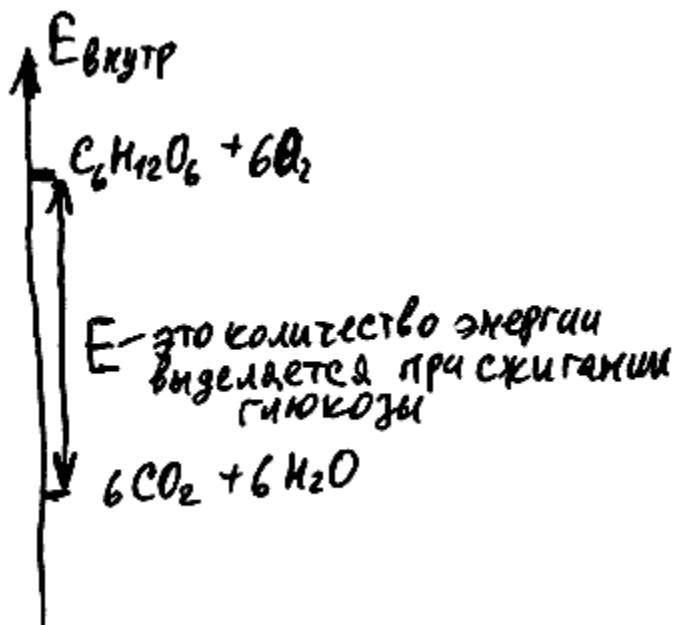 E внутр
C₆H₁₂O₆ + 6O₂
E – это количество энергии
выделяется при сжигании
глюкозы
6CO₂ + 6H₂O